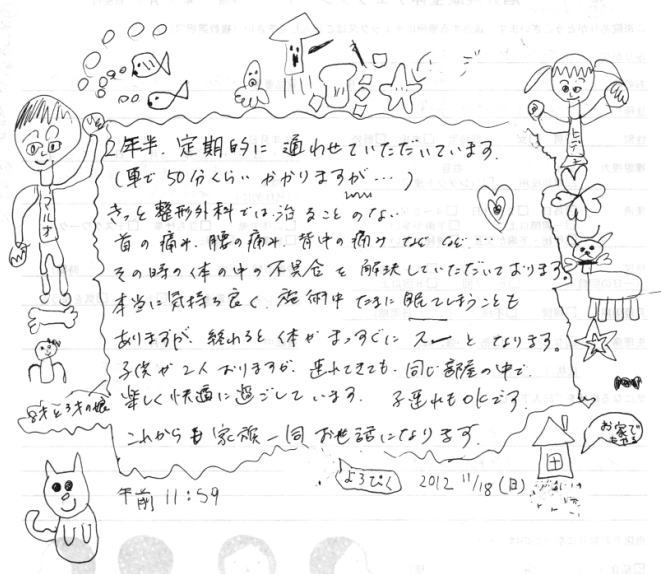 2年半、定期的に通わせていただいています。
(車で50分くらいかかりますが…)
きっと整形外科では治ることのない
首の痛み、腰の痛み、背中の痛み などなど…
その時の体の中の不具合を解決していただいております。
本当に気持ち良く、施術中たまに眠てしまうことも
ありますが、終わると体がまっすぐにスーとなります。
子供が2人おりますが、連れてきても、同じ部屋の中で、
楽しく快適に過ごしています。 子連れもOKです。
これからも家族一同お世話になります。
8才と3才の娘
マルオ
お家で
よろぴく
2012 11/18(日)
午前 11:59